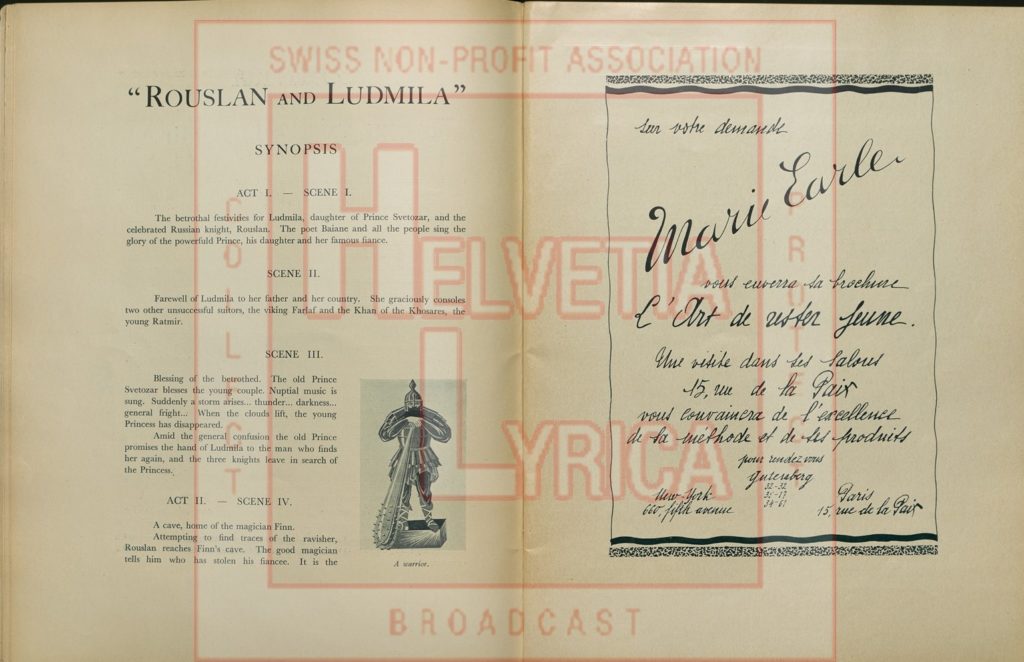 "ROUSLAN AND LUDMILA"
SYNOPSIS
ACT I. — SCENE I.
The betrothal festivities for Ludmila, daughter of Prince Svetozar, and the
celebrated Russian knight, Rouslan. The poet Baiane and all the people sing the
glory of the powerfuld Prince, his daughter and her famous fiance.
SCENE II.
Farewell of Ludmila to her father and her country. She graciously consoles
two other unsuccessful suitors, the viking Farlaf and the Khan of the Khosares, the
young Ratmir.
SCENE III.
Blessing of the betrothed. The old Prince
Svetozar blesses the young couple. Nuptial music is
sung. Suddenly a storm arises... thunder... darkness...
general fright... When the clouds lift, the young
Princess has disappeared.
Amid the general confusion the old Prince
promises the hand of Ludmila to the man who finds
her again, and the three knights leave in search of
the Princess.
ACT II. — SCENE IV.
A cave, home of the magician Finn.
Attempting to find traces of the ravisher,
Rouslan reaches Finn's cave. The good magician
tells him who has stolen his fiancee. It is the
A warrior.
sur votre demande
Marie Earle
vous enverra sa brochure
L'Art de rester Jeune.
Une visite dans ses Salons
15, rue de la Paix
vous convaincra de l'excellence
de sa méthode et de ses produits
pour rendez vous
Gutenberg
32-32
31-13
34-61
New-York
660, fifth avenue
Paris
15, rue de la Paix
SWISS NON-PROFIT ASSOCIATION
HELVETIA
LYRICA
COLLECT
PROTECT
BROADCAST